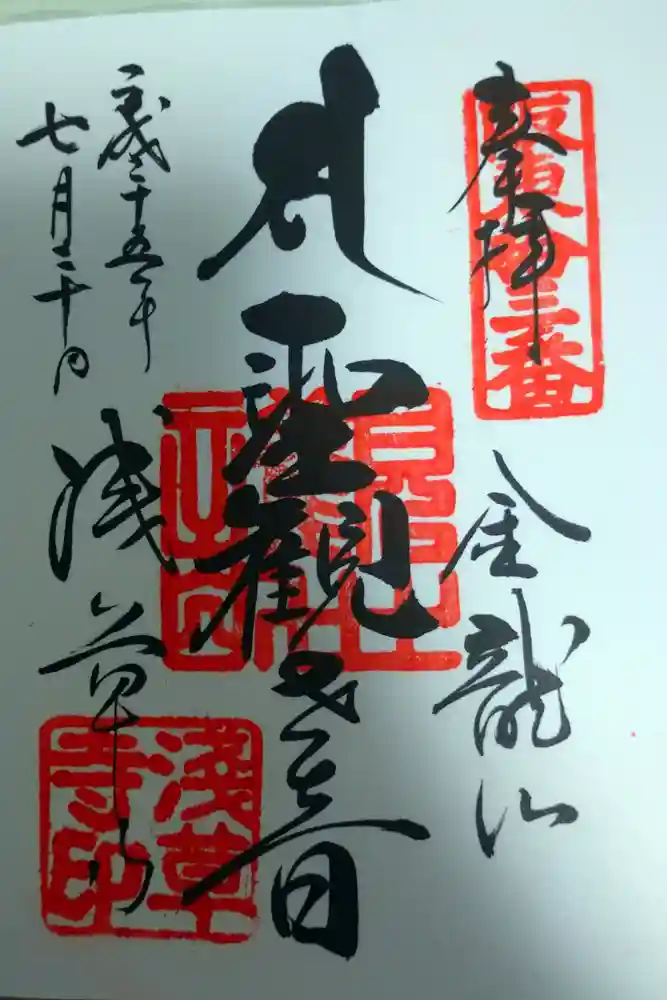 奉拝
坂東拾三番
金龍山
聖觀世音
平成二十五年
七月二十日
浅草寺
淺草
寺印